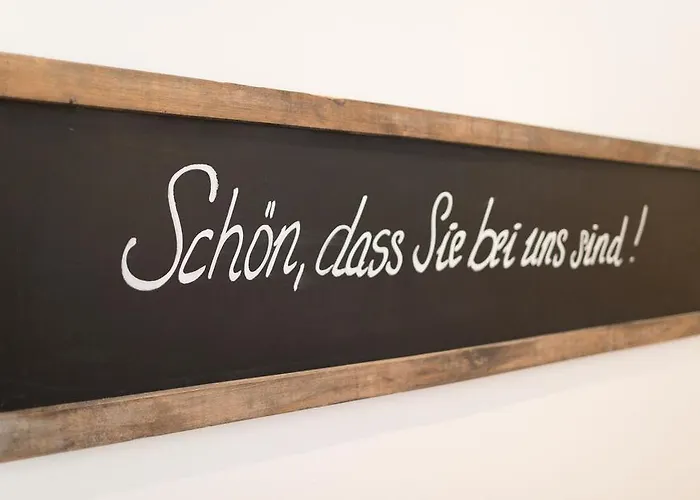 Schön, dass Sie bei uns sind!